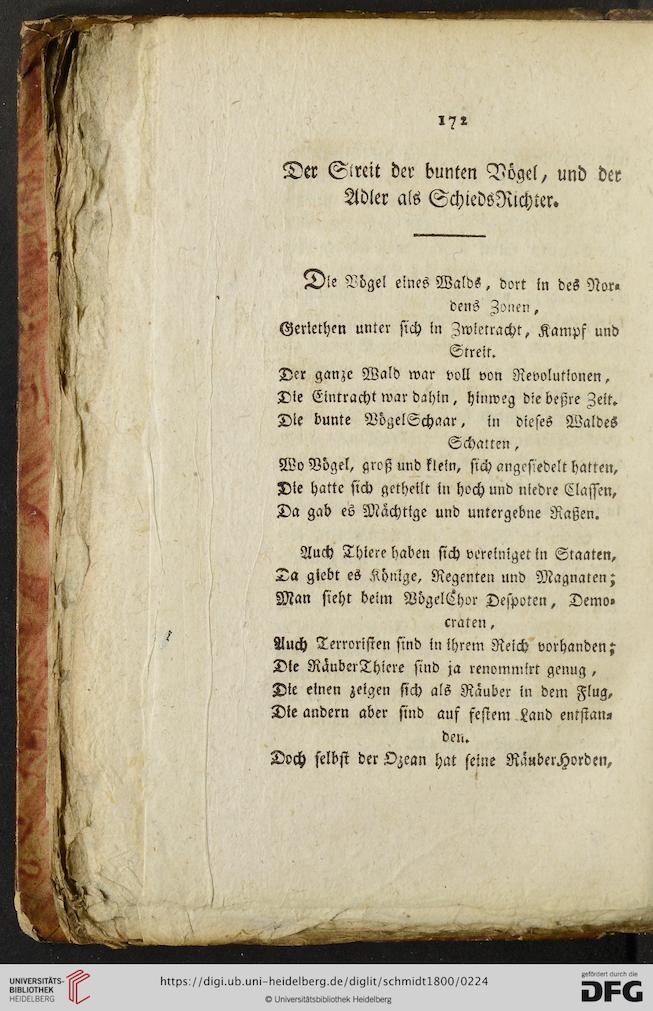 172
Der Streit der bunten Vögel, und der
Adler als SchiedsRichter.
Die Vögel eines Walds, dort in des Nor-
dens Zonen,
Geriethen unter sich in Zwietracht, Kampf und
Streit.
Der ganze Wald war voll von Revolutionen,
Die Eintracht war dahin, hinweg die beßre Zeit.
Die bunte VögelSchaar, in dieses Waldes
Schatten,
Wo Vögel, groß und klein, sich angesiedelt hatten,
Die hatte sich getheilt in hoch und niedre Classen,
Da gab es Mächtige und untergebne Raßen.
Auch Thiere haben sich vereiniget in Staaten,
Da giebt es Könige, Regenten und Magnaten;
Man sieht beim VögelChor Despoten, Demo-
craten,
Auch Terroristen sind in ihrem Reich vorhanden;
Die RäuberThiere sind ja renommirt genug,
Die einen zeigen sich als Räuber in dem Flug,
Die andern aber sind auf festem Land entstan-
den.
Doch selbst der Ozean hat seine RäuberHorden,
UNIVERSITÄTS-
BIBLIOTHEK
HEIDELBERG
https://digi.ub.uni-heidelberg.de/diglit/schmidt1800/0224
© Universitätsbibliothek Heidelberg
gefördert durch die
DFG